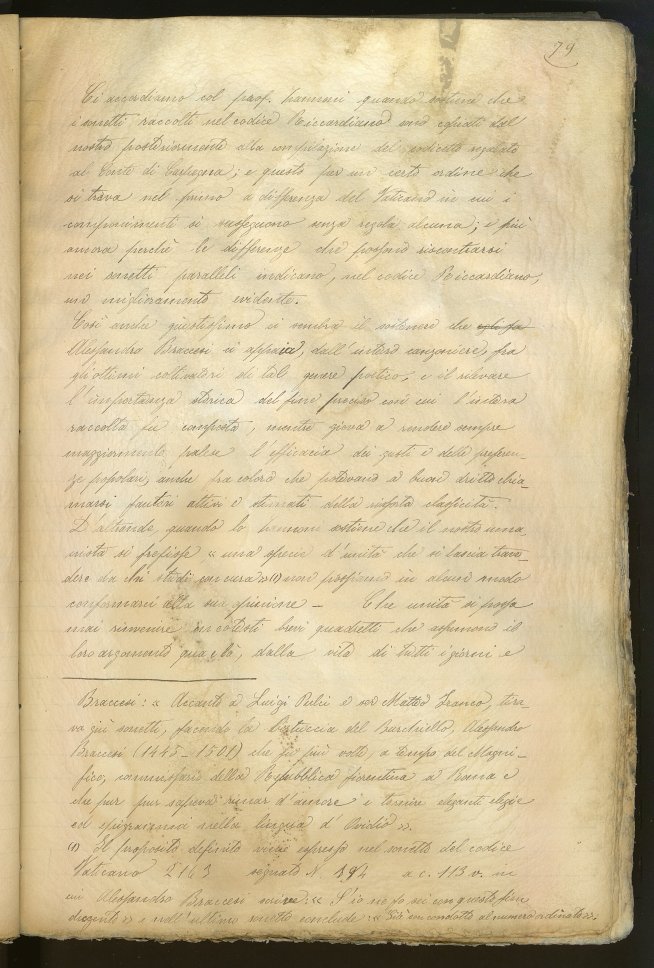 79
Ci accordiamo col prof. Zannoni quando sostiene che
i sonetti raccolti nel codice Riccardiano sono copiati dal
nostro posteriormente alla compilazione del codicetto regalato
al Conte di Carpegna; e questo per un certo ordine che
si trova nel primo a differenza del Vaticano in cui i
componimenti si susseguono senza regola alcuna; e più
ancora perchè le differenze che possono riscontrarsi
nei sonetti paralleli indicano, nel codice Riccardiano,
un miglioramento evidente.
Così anche giustissimo ci sembra il sostenere che
Alessandro Braccesi ci appaia, dall'intero canzoniere, fra
gli ottimi coltivatori di tale genere poetico; e il rilevare
l'importanza storica del fine preciso con cui l'intera
raccolta fu composta, mentre giova a rendere sempre
maggiormente palese l'efficacia dei gusti e delle preferen-
ze popolari, anche fra coloro che potevano a buon dritto chia-
marsi fautori attivi e stimati della risorta classicità.
D'altronde, quando lo Zannoni sostiene che il nostro uma-
nista si prefisse « una specie d'unità che si lascia trave-
dere da chi studi con cura » (1) non possiamo in alcun modo
conformarci alla sua opinione – Che unità si possa
mai rinvenire in cotesti brevi quadretti che assumono il
loro argomento qua e là, dalla vita di tutti i giorni e
Braccesi: « Accanto a Luigi Pulci e ser Matteo Franco, tira-
va giù sonetti, facendo la bertuccia del Burchiello, Alessandro
Braccesi (1445-1501) che fu più volte, a tempo del Magni-
fico, commissario della Repubblica fiorentina a Roma e
che pur pur sapeva rimar d'amore e tornire eleganti elegie
ed epigrammi nella lingua d'Ovidio ».
(1) Il proposito definito viene espresso nel sonetto del codice
Vaticano 2163 segnato N. 192 a c. 113 v. in
cui Alessandro Braccesi scrive: « S'io ne fo sei con questo, fien
dugento » e nell'ultimo sonetto conclude: « Già son condotto al numero ordinato ».